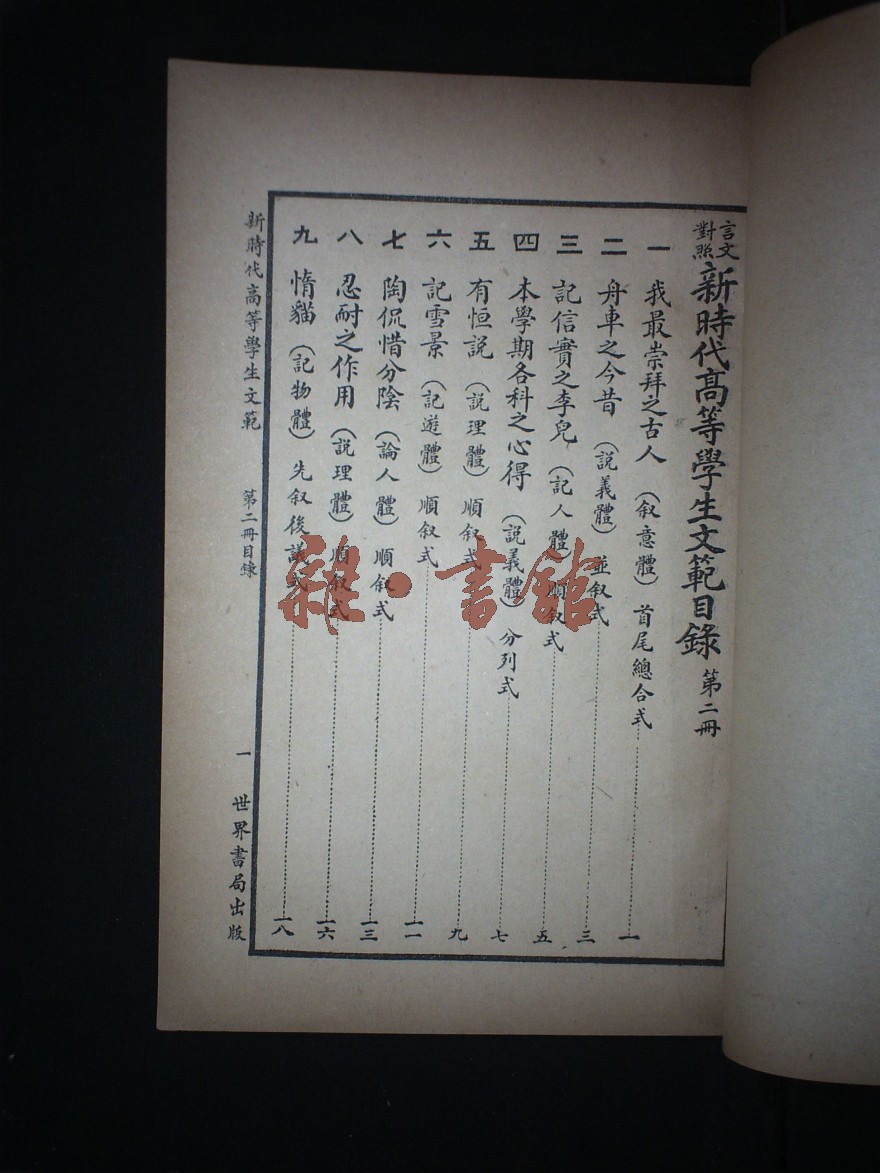 言文對照新時代高等學生文範目錄 第二冊
一 我最崇拜之古人 (叙意體) 首尾總合式 一
二 舟車之今昔 (說義體) 並叙式 三
三 記信實之李兒 (記人體) 順叙式 五
四 本學期各科之心得 (説義體) 分列式 七
五 有恒説 (説理體) 順叙式 九
六 記雪景 (記遊體) 順叙式 一一
七 陶侃惜分陰 (論人體) 順叙式 一三
八 忍耐之作用 (説理體) 順叙式 一六
九 惰貓 (記物體) 先叙後議式 一八
新時代高等學生文範 第二冊目錄 一 世界書局出版
雜·書館